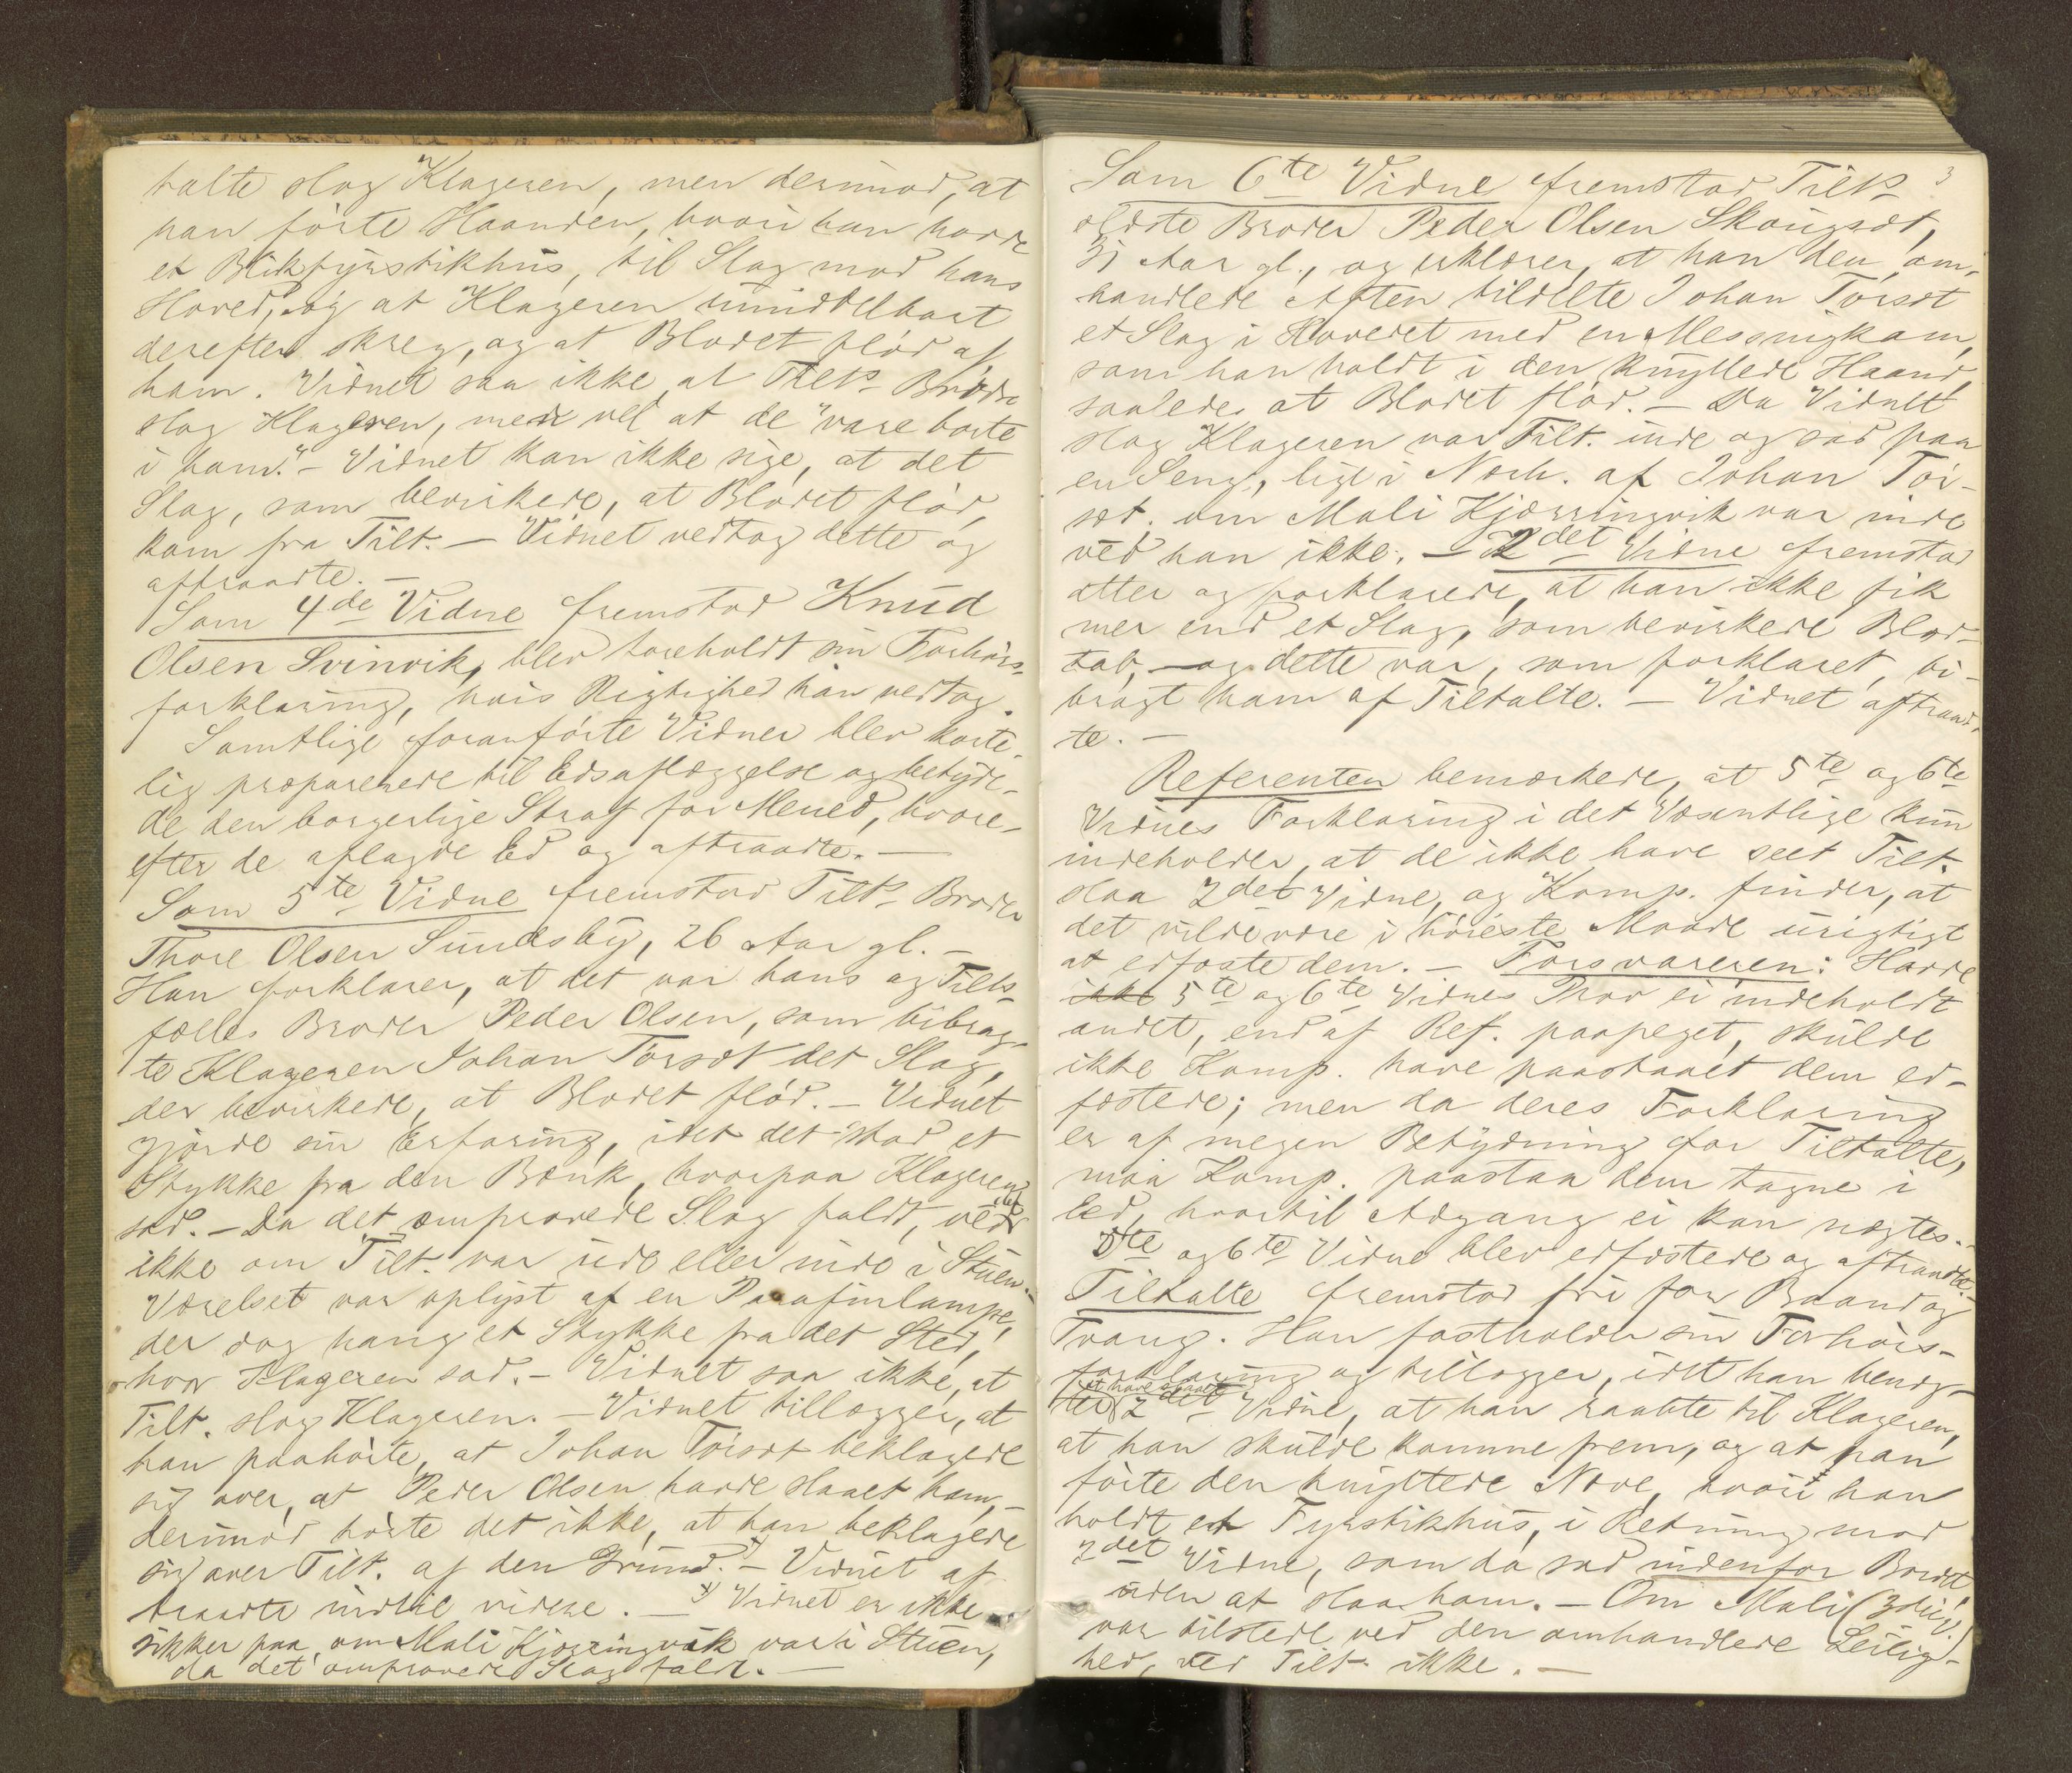 talte slog Klageren, men derimod, at
han førte Haanden, hvori han havde
et Blikfyrstikhus, til Slag mod hans
Hoved, og at Klageren umiddelbart
derefter skreg, og at Blodet flød af
ham. Vidnet saa ikke at Tilts Brødre
slog Klageren, men vel at de "vare borte
i ham". - Vidnet kan ikke sige, at det
Slag, som bevirkede, at Blodet flød,
kom fra Tilt. - Vidnet vedtog dette og
aftraadte. -
Som 4de Vidne fremstod Knud
Olsen Svinvik, blev foreholdt sin Forhørs-
forklaring, hvis Rigtighed han vedtog.
Samtlige foranførte Vidner blev korte-
lig præparerede til Edsaflæggelse og betyde-
de den borgerlige Straf for Mened, hvor-
efter de aflagde Ed og aftraadte. -
Som 5te Vidne fremstod Tilts Broder
Thore Olsen Sundsby, 26 Aar gl. -
Han forklarer, at det var hans og Tilts
fælles Broder Peder Olsen, som bibrag-
te Klageren Johan Torset det Slag,
der bevirkede, at Blodet flød. - Vidnet
gjorde sin Erfaring, idet det stod et
Stykke fra den Bænk, hvorpaa Klageren
sad. - Da det omprovede Slag faldt, ved det
ikke om Tilt. var ude eller inde i Stuen. -
Værelset var oplyst af en Parafinlampe,
der dog hang et Stykke fra det Sted,
hvor Klageren sad. - Vidnet saa ikke, at
Tilt. slog Klageren. - Vidnet tillægger, at
han paahørte, at Johan Torset beklagede
sig over, at Peder Olsen havde slaaet ham, -
derimod hørte det ikke, at han beklagede
sig over Tilt. af den Grund. x) - Vidnet af
traadte indtil videre. - x) Vidnet er ikke
sikker paa, om Mali Kjørringvik var i Stuen,
da det omprovede Slag faldt. -
3
Som 6te Vidne fremstod Tilts
ældste Broder Peder Olsen Skougset,
31 Aar gl., og erklærer, at han den om-
handlede Aften tildelte Johan Torset
et Slag i Hovedet med en Messingkam,
som han holdt i den knyttede Haand,
saaledes at Blodet flød. - Da Vidnet
slog Klageren var Tilt. inde og sad paa
en Seng, ligt i Nærh. af Johan Tor-
set. om Mali Kjørringvik var inde
ved han ikke. - 2det Vidne fremstod
atter og forklarede, at han ikke fik
mer end et Slag, som bevirkede Blod-
tab, - og dette var, som forklaret, bi-
bragt ham af Tiltalte. - Vidnet aftraad-
te. -
Referenten bemærkede, at 5te og 6te
Vidnes Forklaring i det Væsentlige kun
indeholder, at de ikke have seet Tilt.
slaa 2det Vidne, og Komp. finder, at
det vilde være i høieste Maade urigtigt
at edfæste dem. - Forsvareren: Havde
ikke 5te og 6te Vidnes Prov ei indeholdt
andet, end af Ref. paapeget, skulde
ikke Komp. have paastaaet dem ed-
fæstede; men da deres Forklaring
er af megen Betydning for Tiltalte,
maa Komp. paastaa dem tagne i
Ed, hvortil Adgang ei kan nægtes. -
5te og 6te Vidne blev edfæstede og aftraadte. -
Tiltalte fremstod fri for Baand og
Tvang. Han fastholder sin Forhørs-
forklaring og tillægger, idet han benæg-
ter at have slaaet 2det Vidne, at han raabte til Klageren,
at han skulde komme frem, og at han
førte den knyttede Næve, hvori han
holdt et Fyrstikhus, i Retning mod
2det Vidne, som da sad indenfor Bordet,
uden at slaa ham. - Om Mali (3die V.)
var tilstede ved den omhandlede Leilig-
hed, ved Tilt. ikke. -